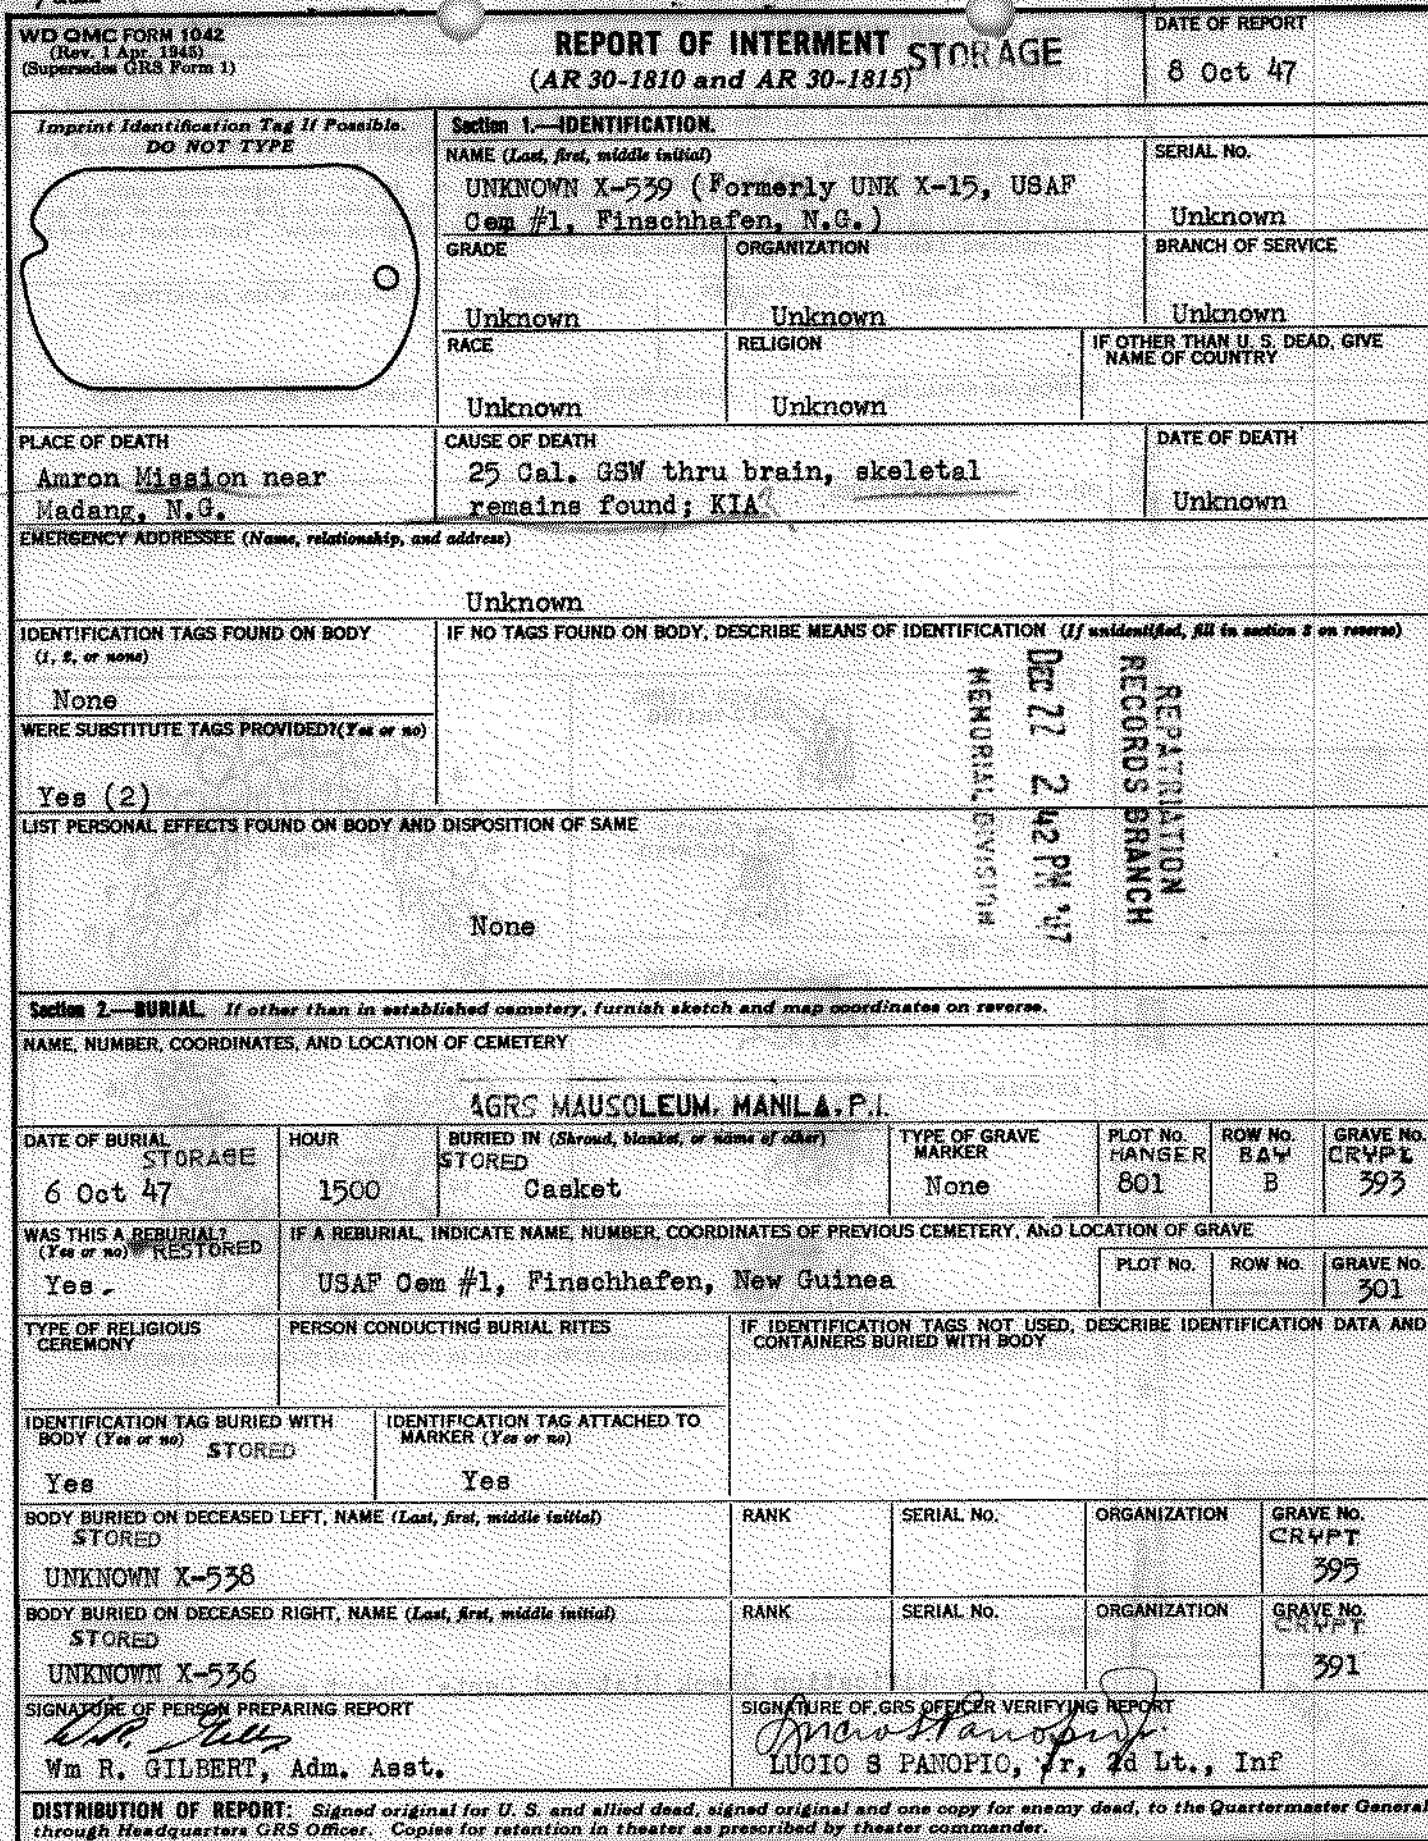 WD QMC FORM 1042
(Rev. 1 Apr. 1945)
(Supersedes GRS Form 1)
REPORT OF INTERMENT STORAGE
(AR 30-1810 and AR 30-1815)
DATE OF REPORT
8 Oct 47
Imprint Identification Tag If Possible.
DO NOT TYPE
Section 1.—IDENTIFICATION.
NAME (Last, first, middle initial)
UNKNOWN X-539 (Formerly UNK X-15, USAF
Cem #1, Finschhafen, N.G.)
SERIAL No.
Unknown
GRADE
Unknown
ORGANIZATION
Unknown
BRANCH OF SERVICE
Unknown
RACE
Unknown
RELIGION
Unknown
IF OTHER THAN U. S. DEAD, GIVE
NAME OF COUNTRY
PLACE OF DEATH
Amron Mission near
Madang, N.G.
CAUSE OF DEATH
25 Cal. GSW thru brain, skeletal
remains found; KIA?
DATE OF DEATH
Unknown
EMERGENCY ADDRESSEE (Name, relationship, and address)
Unknown
IDENTIFICATION TAGS FOUND ON BODY
(1, 2, or none)
None
IF NO TAGS FOUND ON BODY, DESCRIBE MEANS OF IDENTIFICATION (If unidentified, fill in section 3 on reverse)
WERE SUBSTITUTE TAGS PROVIDED? (Yes or no)
Yes (2)
REPATRIATION
RECORDS BRANCH
DEC 22 2 42 PM '47
MEMORIAL DIVISION
LIST PERSONAL EFFECTS FOUND ON BODY AND DISPOSITION OF SAME
None
Section 2.—BURIAL. If other than in established cemetery, furnish sketch and map coordinates on reverse.
NAME, NUMBER, COORDINATES, AND LOCATION OF CEMETERY
AGRS MAUSOLEUM, MANILA, P.I.
DATE OF BURIAL
STORAGE
6 Oct 47
HOUR
1500
BURIED IN (Shroud, blanket, or name of other)
STORED
Casket
TYPE OF GRAVE
MARKER
None
PLOT No.
HANGER
801
ROW No.
BAY
B
GRAVE No.
CRYPT
393
WAS THIS A REBURIAL?
(Yes or no) RESTORED
Yes.
IF A REBURIAL, INDICATE NAME, NUMBER, COORDINATES OF PREVIOUS CEMETERY, AND LOCATION OF GRAVE
USAF Cem #1, Finschhafen, New Guinea
PLOT No.
ROW No.
GRAVE No.
301
TYPE OF RELIGIOUS
CEREMONY
PERSON CONDUCTING BURIAL RITES
IF IDENTIFICATION TAGS NOT USED, DESCRIBE IDENTIFICATION DATA AND
CONTAINERS BURIED WITH BODY
IDENTIFICATION TAG BURIED WITH
BODY (Yes or no) STORED
Yes
IDENTIFICATION TAG ATTACHED TO
MARKER (Yes or no)
Yes
BODY BURIED ON DECEASED LEFT, NAME (Last, first, middle initial)
STORED
UNKNOWN X-538
RANK
SERIAL No.
ORGANIZATION
GRAVE No.
CRYPT
395
BODY BURIED ON DECEASED RIGHT, NAME (Last, first, middle initial)
STORED
UNKNOWN X-536
RANK
SERIAL No.
ORGANIZATION
GRAVE No.
CRYPT
391
SIGNATURE OF PERSON PREPARING REPORT
Wm R. GILBERT, Adm. Asst.
SIGNATURE OF GRS OFFICER VERIFYING REPORT
LUCIO S PANOPIO, Jr, 2d Lt., Inf
DISTRIBUTION OF REPORT: Signed original for U. S. and allied dead, signed original and one copy for enemy dead, to the Quartermaster General
through Headquarters GRS Officer. Copies for retention in theater as prescribed by theater commander.